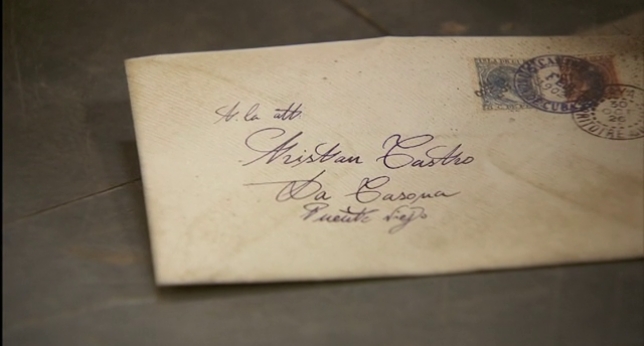 CUBA
30
26
A la att.
Tristan Castro
La Casona
Puente Viejo